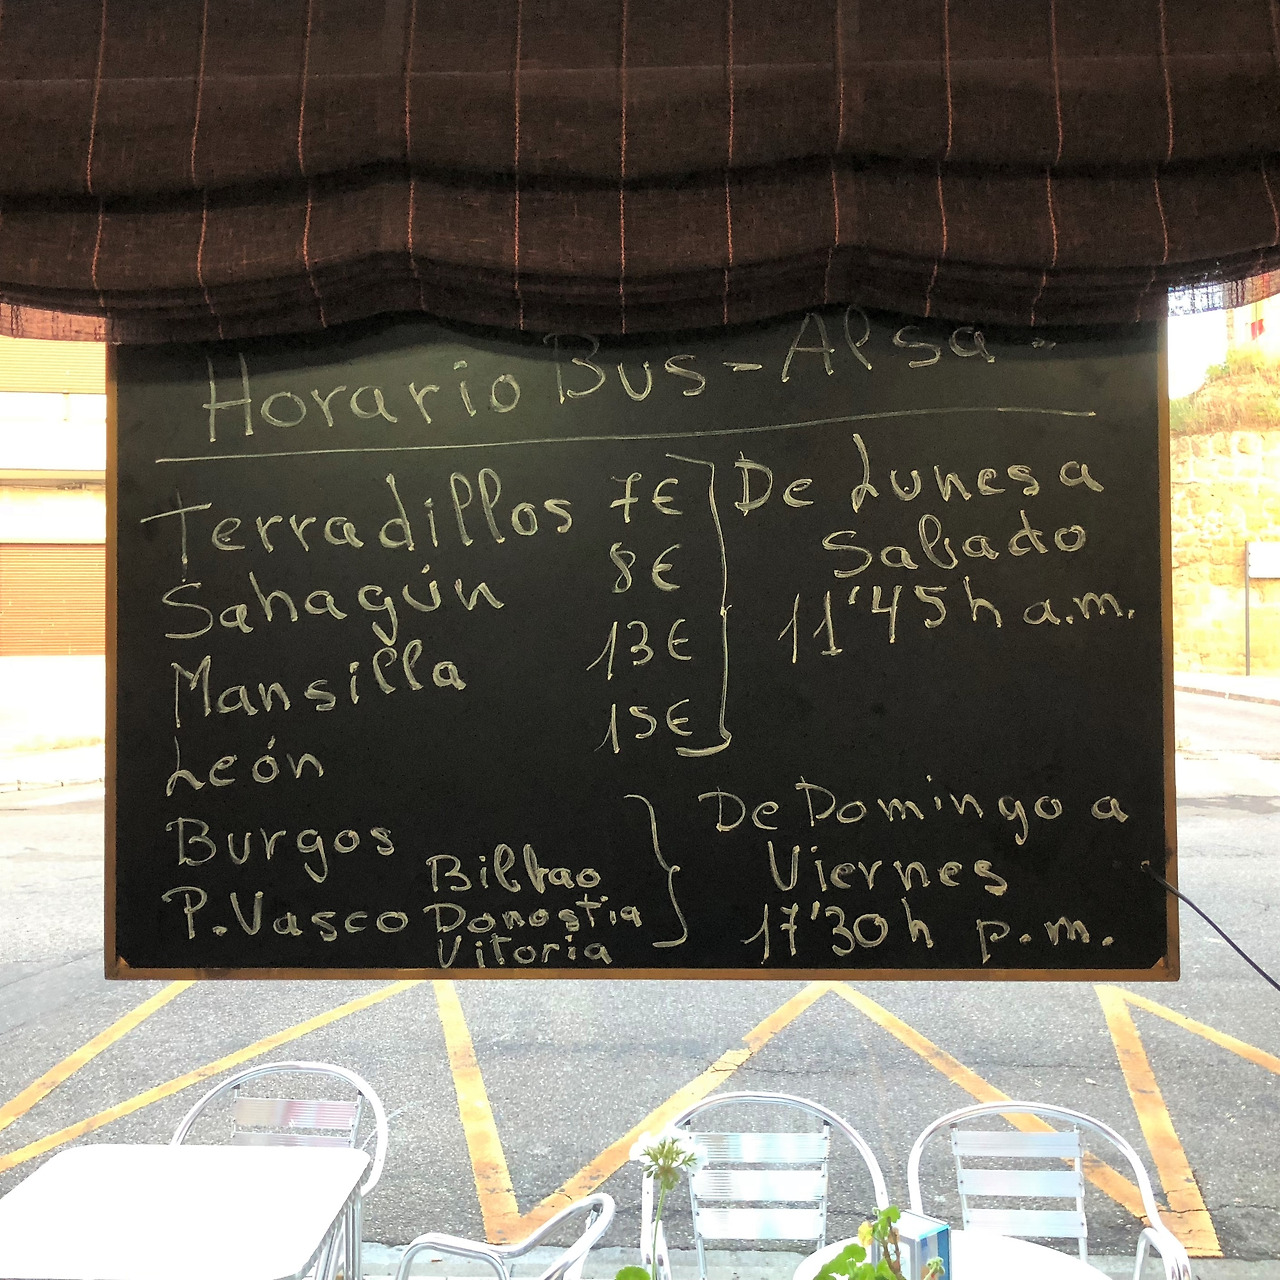 Horario Bus - Alsa
Terradillos 7€
Sahagún 8€
Mansilla 13€
León 15€
De Lunes a
Sabado
11'45h a.m.
Burgos
P. Vasco Bilbao
Donostia
Vitoria
De Domingo a
Viernes
17'30h p.m.